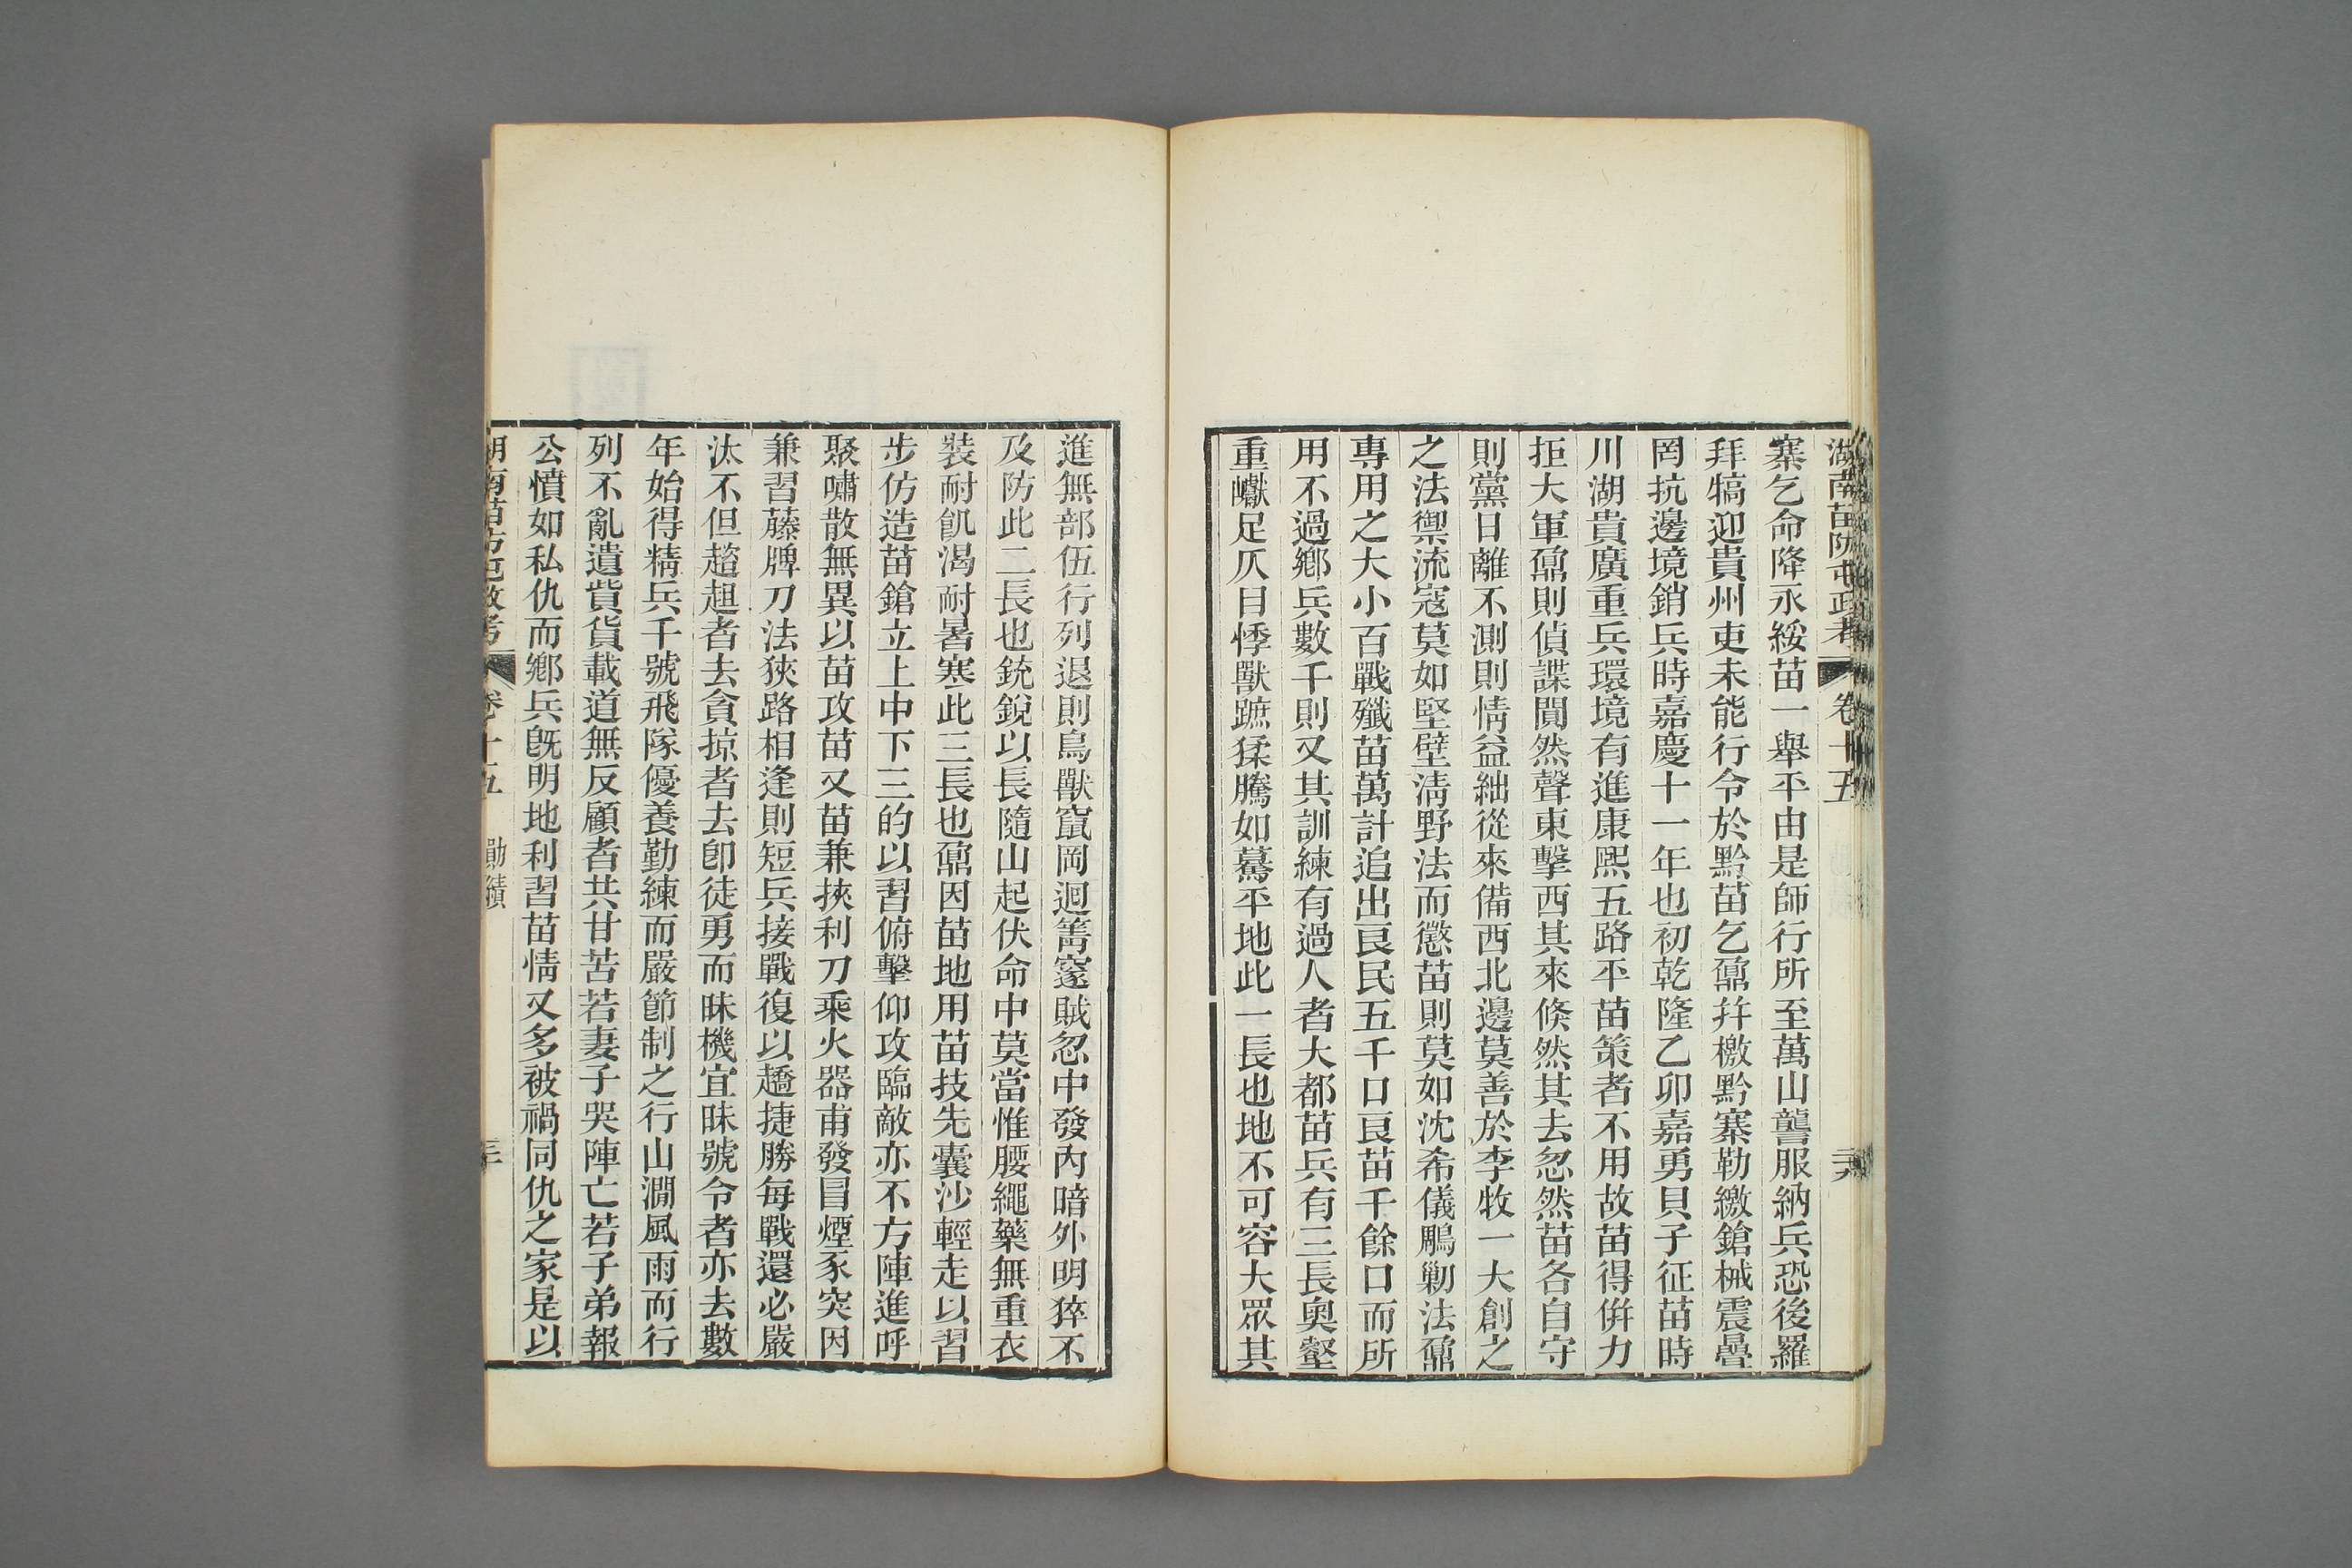 湖南苗防屯政考 卷十五
寨乞命降永綏苗一舉平由是師行所至萬山讋服納兵恐後羅
拜犒迎貴州吏未能行令於黔苗乞鼐幷檄黔寨勒繳鎗械震疊
罔抗邊境銷兵時嘉慶十一年也初乾隆乙卯嘉勇貝子征苗時
川湖貴廣重兵環境有進康熙五路平苗策者不用故苗得倂力
拒大軍鼐則偵諜閒然聲東擊西其來倏然其去忽然苗各自守
則黨日離不測則情益絀從來備西北邊莫善於李牧一大創之
之法禦流寇莫如堅壁淸野法而懲苗則莫如沈希儀鵰勦法鼐
專用之大小百戰殲苗萬計追出良民五千口良苗千餘口而所
用不過鄕兵數千則又其訓練有過人者大都苗兵有三長奧壑
重巘足仄目悸獸蹠猱騰如驀平地此一長也地不可容大眾其
進無部伍行列退則鳥獸竄岡迴箐邃賊忽中發內暗外明猝不
及防此二長也銃銳以長隨山起伏命中莫當惟腰繩藥無重衣
裝耐飢渴耐暑寒此三長也鼐因苗地用苗技先囊沙輕走以習
步仿造苗鎗立上中下三的以習俯擊仰攻臨敵亦不方陣進呼
聚嘯散無異以苗攻苗又苗兼挾利刀乘火器甫發冒煙豕突因
兼習藤牌刀法狹路相逢則短兵接戰復以趫捷勝每戰還必嚴
汰不但趦趄者去貪掠者去卽徒勇而昧機宜昧號令者亦去數
年始得精兵千號飛隊優養勤練而嚴節制之行山澗風雨而行
列不亂遺貲貨載道無反顧者共甘苦若妻子哭陣亡若子弟報
公憤如私仇而鄕兵旣明地利習苗情又多被禍同仇之家是以
湖南苗防屯政考 卷十五 勛績